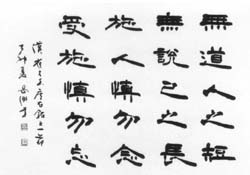 無道人之短
無說己之長
施人慎勿念
受施慎勿忘
漢崔子玉座右銘之一節